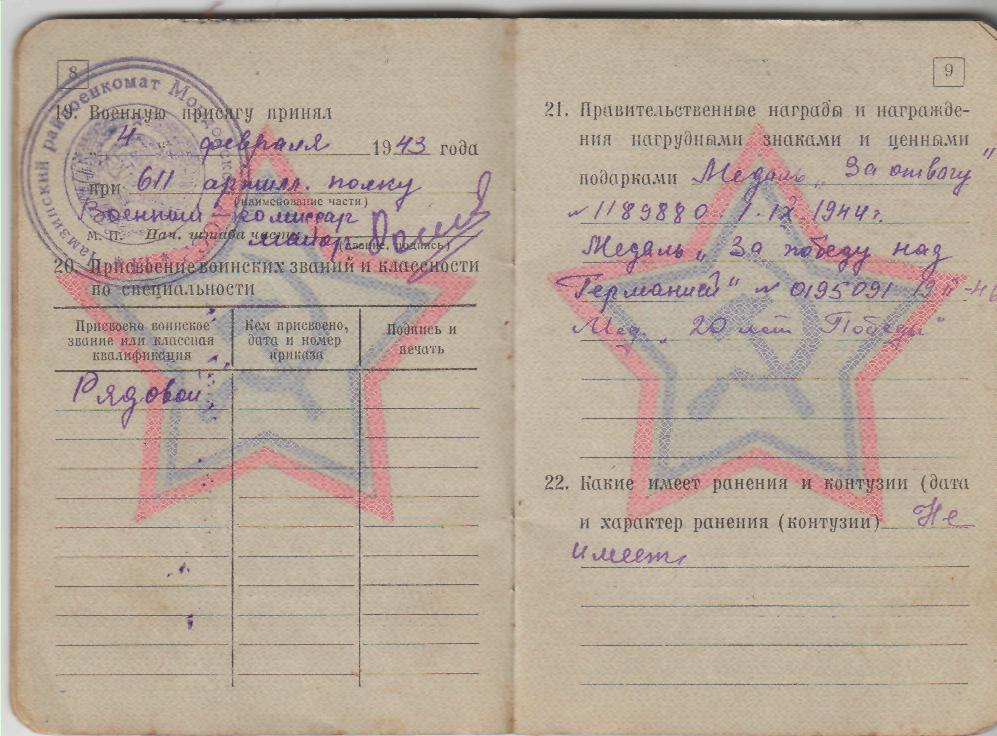 8
19. Военную присягу принял
4 февраля 1943 года
при 611 артилл. полку
(наименование части)
Военный комиссар
М. П. Нач. штаба части майор
(звание, подпись)
20. Присвоение воинских званий и классности
по специальности
Присвоено воинское
звание или классная
квалификация
Кем присвоено,
дата и номер
приказа
Подпись и
печать
Рядовой
9
21. Правительственные награды и награжде-
ния нагрудными знаками и ценными
подарками Медаль „За отвагу"
№ 1189880 1.IX.1944г.
Медаль „За победу над
Германией" № 0195091
Мед. „20 лет Победы"
22. Какие имеет ранения и контузии (дата
и характер ранения (контузии) Не
имеет